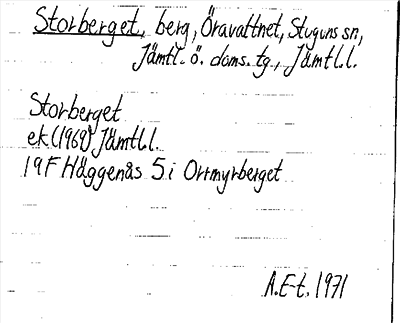 Storberget, berg, Öravattnet, Stuguns sn,
Jämtl. ö. doms. tg., Jämtl.l.
Storberget
ek.(1969) Jämtl.l.
19F Häggenås 5 i Orrmyrberget
A.E-t. 1971